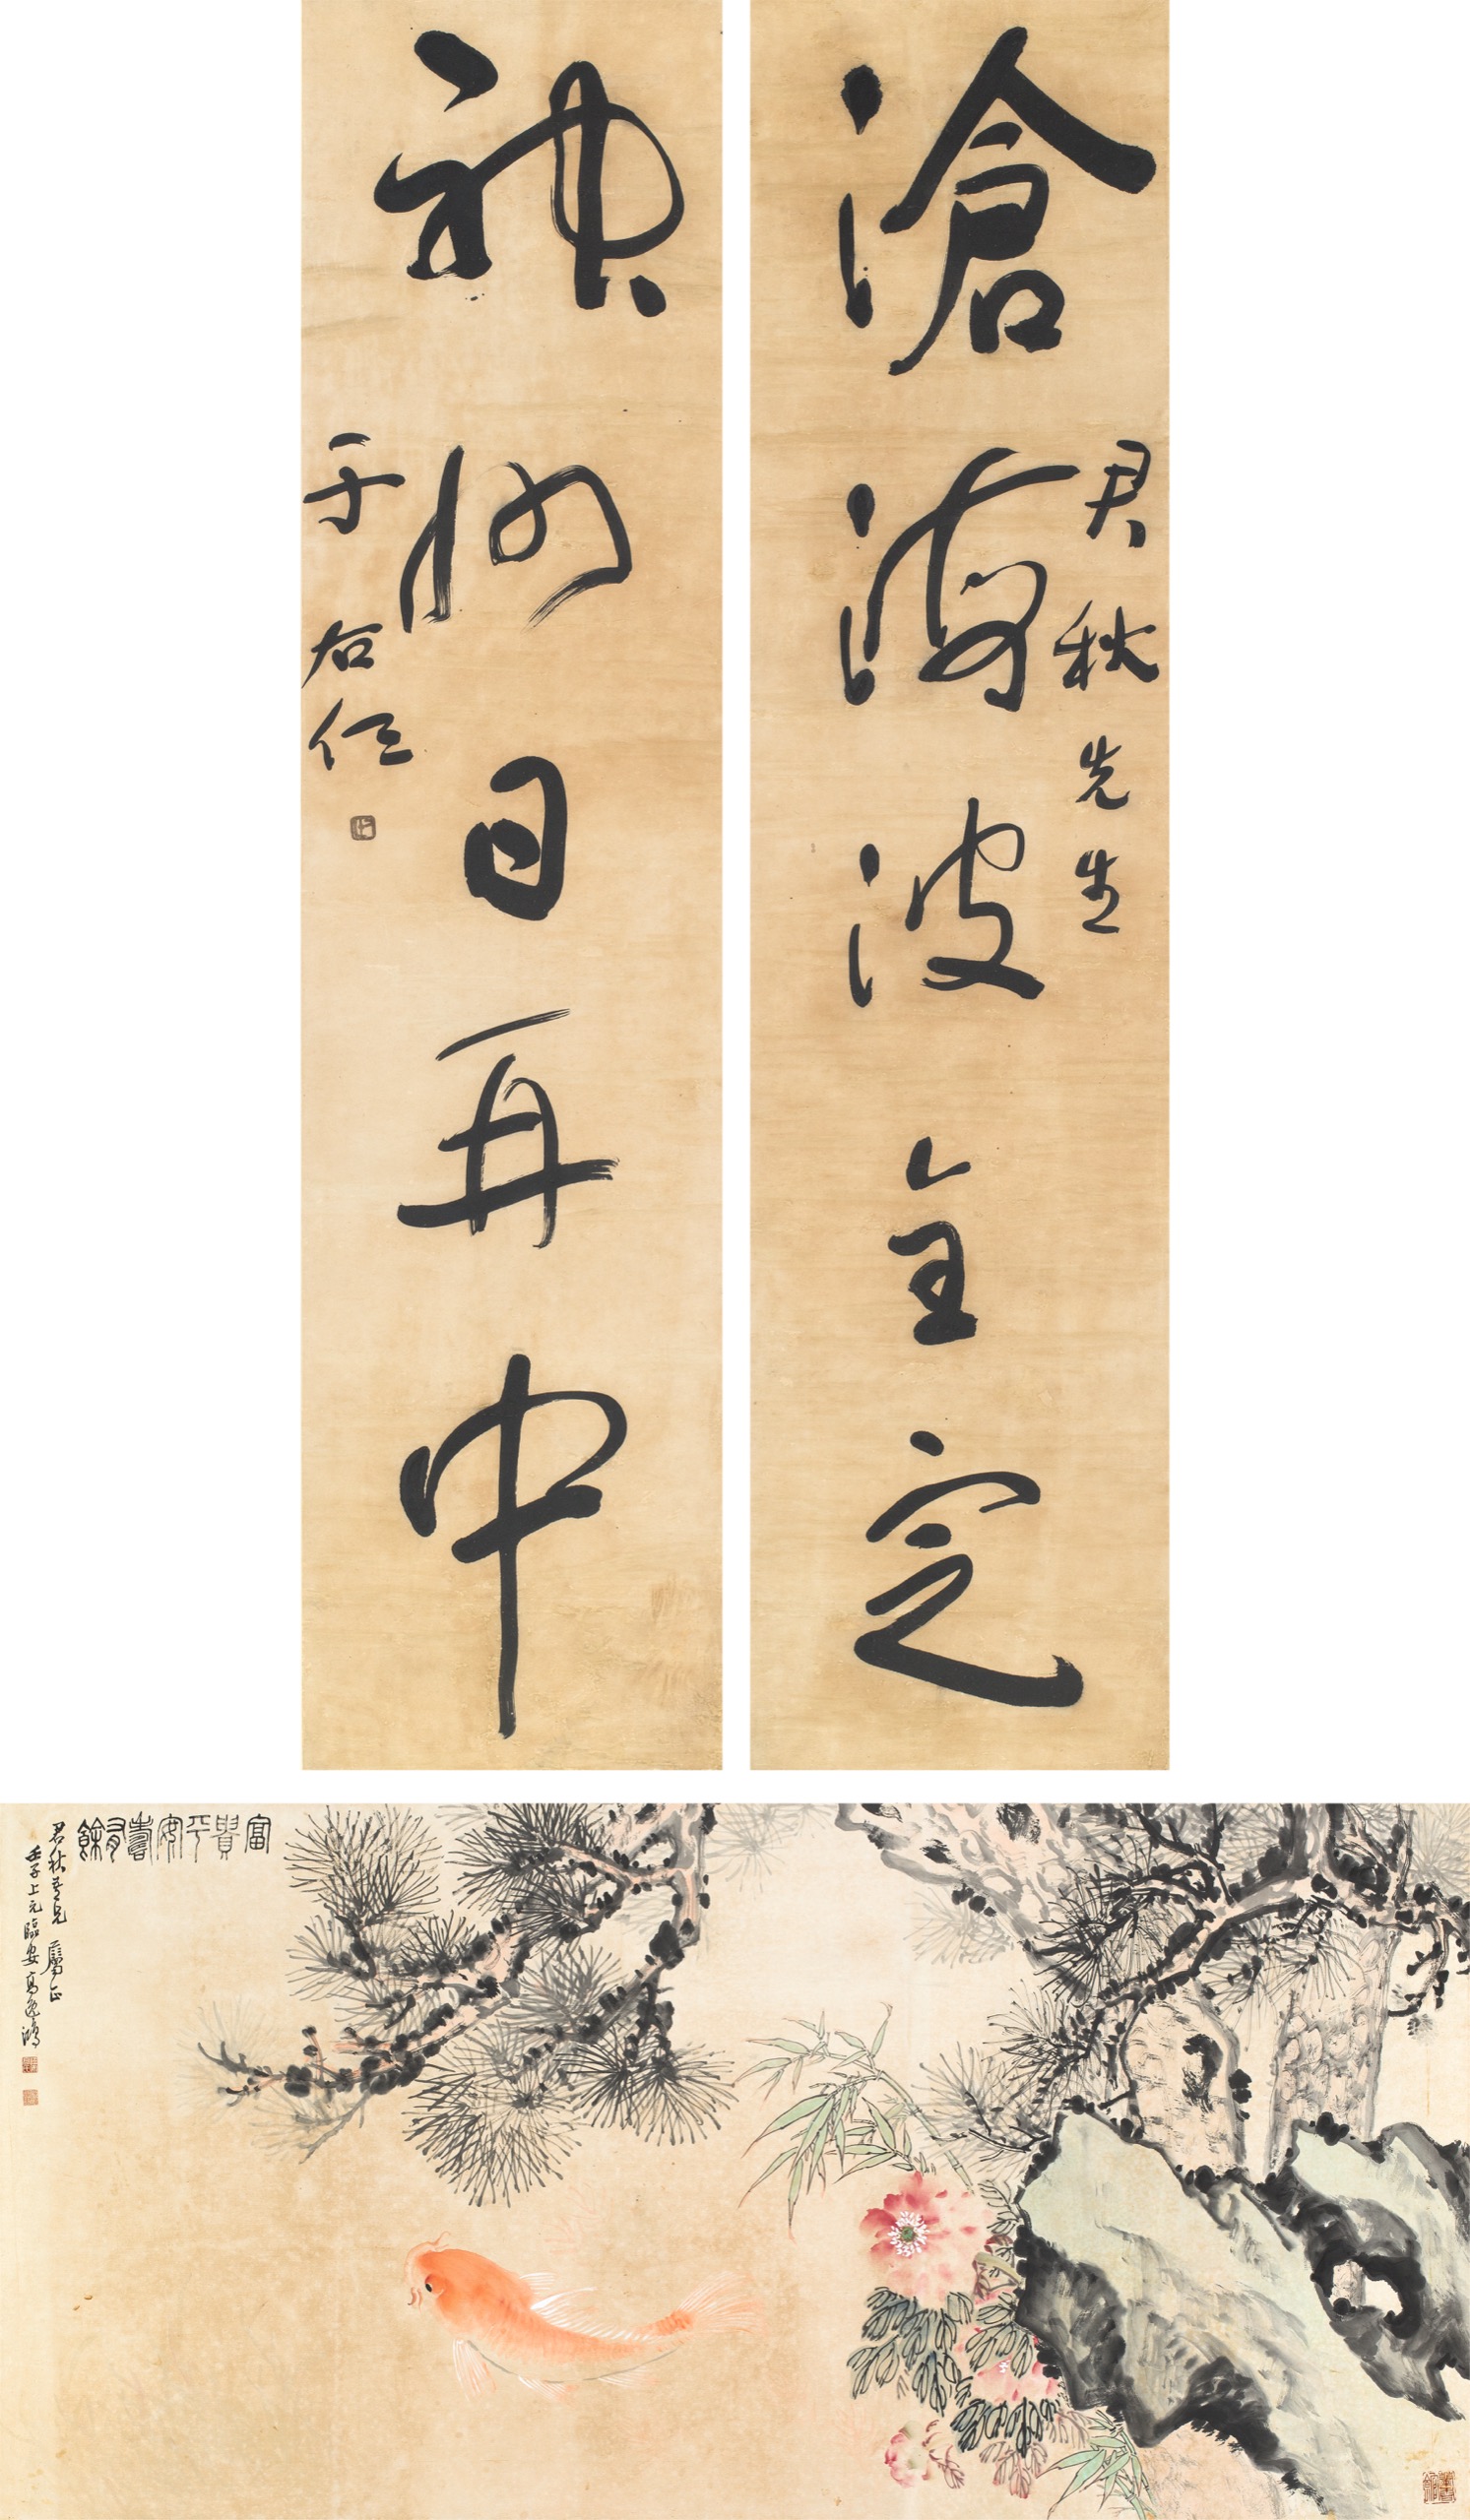 滄海波全定
君秋先生
神州日再中
于右任
富貴平安壽有餘
君秋吾兄屬正
壬子上元臨安高逸鴻